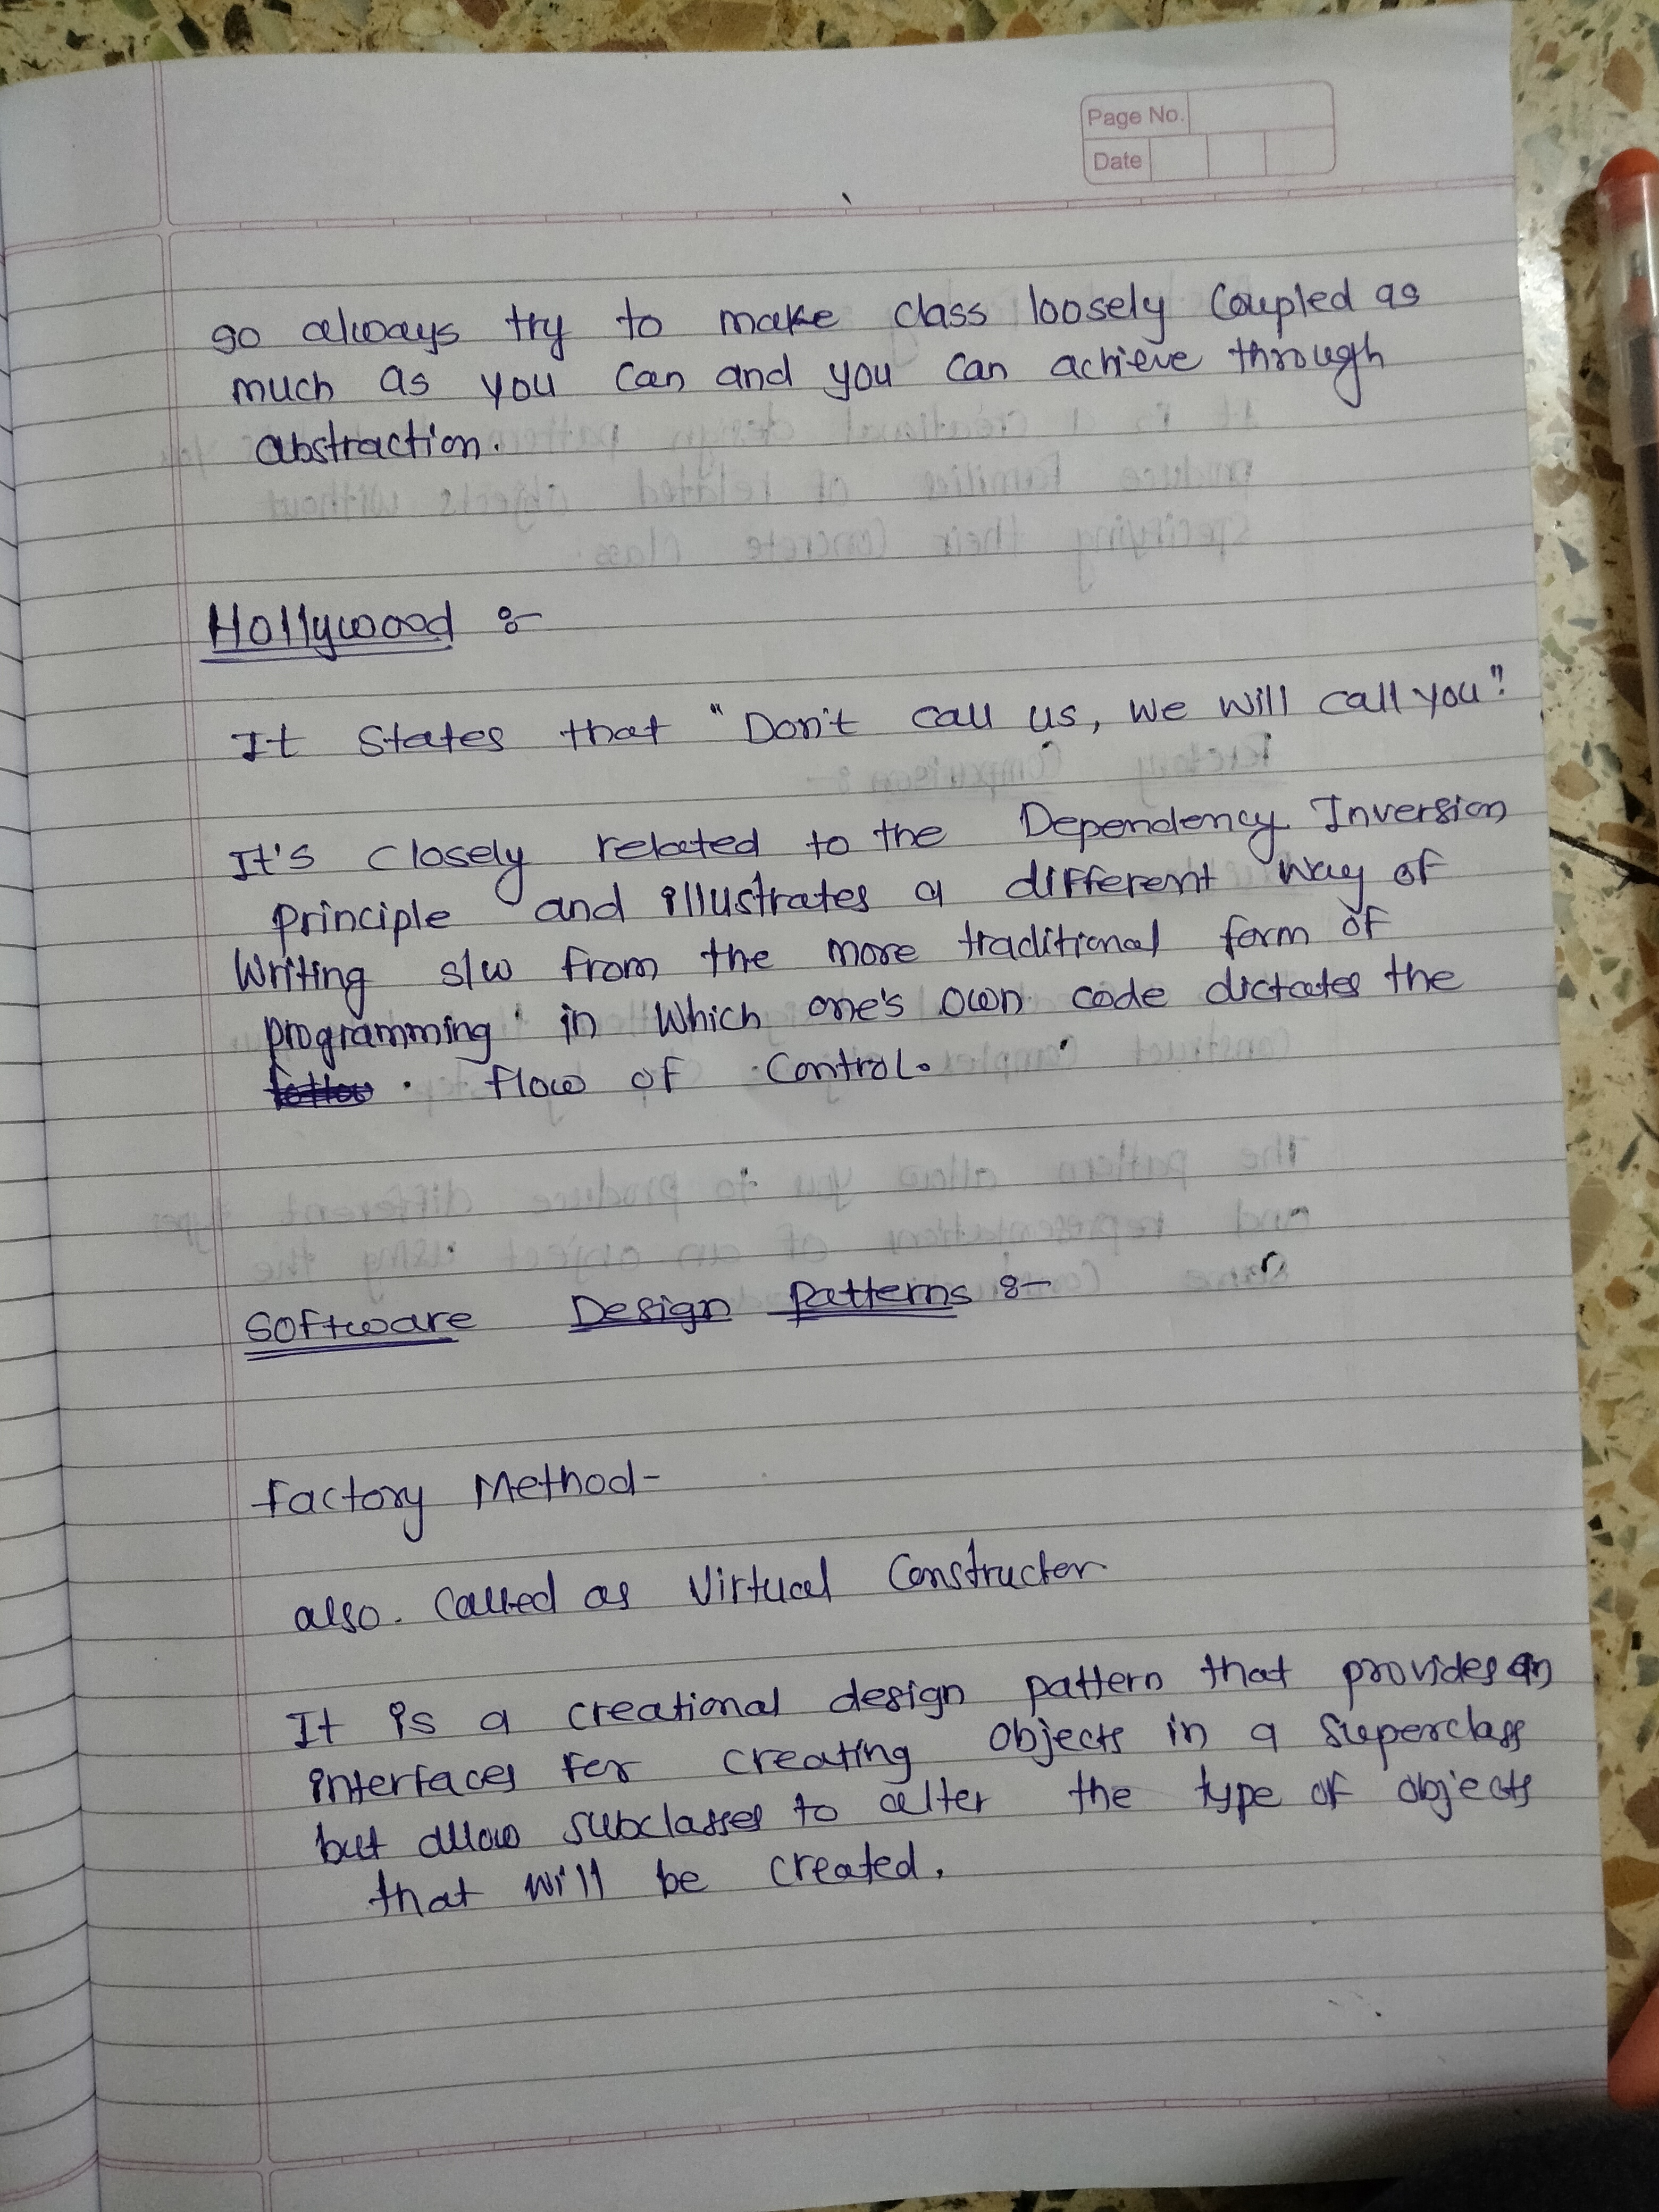 Page No.
Date
so always try to make class loosely Coupled as
much as you Can and you Can achieve through
abstraction.
Hollywood :-
It States that "Don't call us, We Will call you"
It's closely related to the Dependency Inversion
Principle and illustrates a different way of
Writing s/w from the more traditional form of
programming in Which one's own code dictates the
flow of Control.
Software Design Patterns :-
factory Method-
also. Called as Virtual Constructor
It is a creational design pattern that provides an
interfaces for creating objects in a superclass
but allow subclasses to alter the type of objects
that will be created.